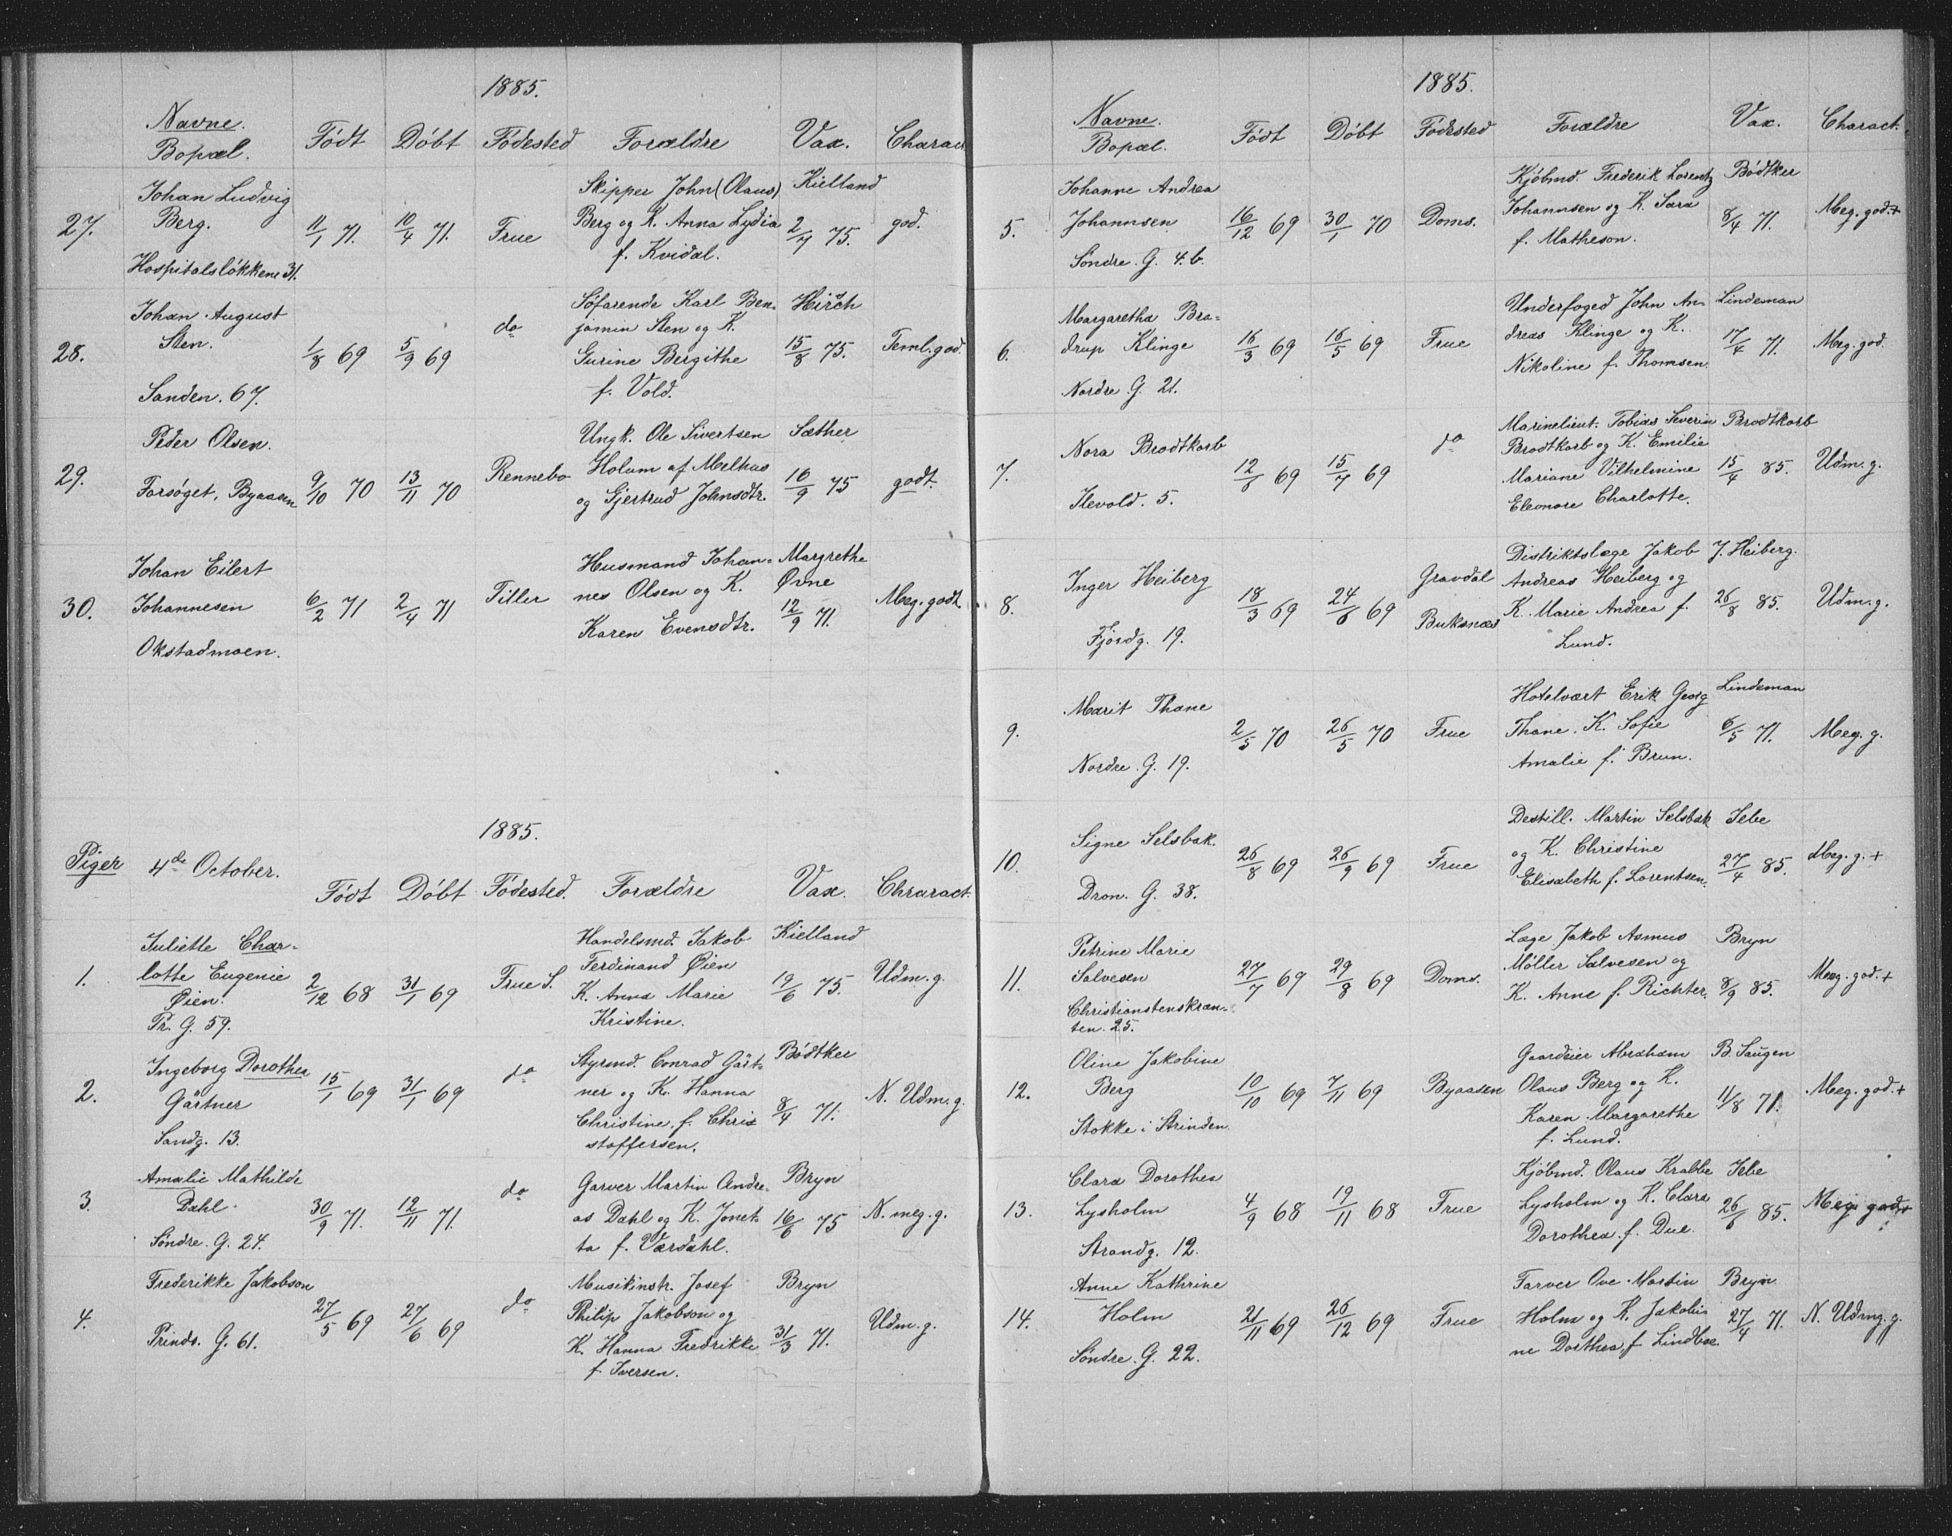 1885.
Navne.
Bopæl. Født Døbt Fødested Forældre Vax. Charact
27. Johan Ludvig Berg. Hospitalsløkkene 31. 11/1 71. 10/4 71. Frue Skipper John (Olaus) Berg og K. Anna Lydia f. Kvidal. Kielland 2/7 75. god.
28. Johan August Sten. Sanden. 67. 1/8 69 5/9 69 do Søfarende Karl Benjamin Sten og K. Gurine Bergithe f. Vold. Hirsch 15/8 75. Teml. god.
29. Peder Olsen. Forsøget, Byaasen 9/10 70 13/11 70 Rennebo Ungk. Ole Sivertsen Holum af Melhus og Gjertrud Johnsdtr. Sæther 16/9 75 godt.
30. Johan Eilert Johannesen Okstadmoen. 6/2 71 2/4 71 Tiller Husmand Johannes Olsen og K. Karen Evensdtr. Margrethe Øvne 12/9 71. Meg. godt
1885.
Piger 4de October.
Født Døbt Fødested. Forældre Vax. Chraract.
1. Juliette Charlotte Eugenie Øien. Pr. G. 59. 2/12 68 31/1 69 Frue S. Handelsmd. Jakob Ferdinand Øien K. Anna Marie Kristine. Kielland 19/6 75. Udm. g.
2. Ingeborg Dorothea Gärtner Sandg. 13. 15/1 69 31/1 69 do Styrmd. Conrad Gärtner og K. Hanna Christine f. Christoffersen. Bødtker 8/4 71. N. Udm. g.
3. Amalie Mathilde Dahl. Søndre. G. 24. 30/9 71. 12/11 71. do Garver Martin Andreas Dahl og K. Jonetta f. Værdahl. Bryn 16/6 75 N. meg. g.
4. Frederikke Jakobson Prinds. G. 61. 27/5 69 27/6 69 do Musikinstr. Josef Philip Jakobson og K. Hanna Fredrikke f. Iversen. Bryn 31/3 71. Udm. g.
1885.
Navne.
Bopæl. Født Døbt Fødested Forældre Vax. Charact.
5. Johanne Andrea Johannsen Søndre. G. 4.b. 16/12 69 30/1 70 Doms. Kjøbmd. Frederik Lorentz Johannsen og K. Sara f. Matheson. Bødtker 8/4 71. Meg. god. +
6. Margaretha Bradrup Klinge Nordre G. 21. 16/3 69 16/5 69 Frue Underfoged John Andreas Klinge og K. Nikoline f. Thomsen. Lindeman 17/4 71. Meg. god.
7. Nora Brodtkorb Ilevold. 5. 12/6 69 15/7 69 do Marinelieut. Tobias Severin Brodtkorb og K. Emilie Mariane Vilhelmine Eleonore Charlotte. Brodtkorb 15/4 85. Udm. g.
8. Inger Heiberg Fjordg. 19. 18/3 69 24/6 69 Gravdal Buksnæs Distriktslæge Jakob Andreas Heiberg og K. Marie Andrea f. Lund. J. Heiberg. 26/8 85. Udm. g.
9. Marit Thane Nordre. G. 19. 2/5 70 26/5 70 Frue Hotelvært Erik Georg Thane. K. Sofie Amalie f. Brun. Lindeman 6/5 71. Meg. g.
10. Signe Selsbak. Dron. G. 38. 26/8 69 26/9 69 Frue Destill. Martin Selsbak og K. Christine Elisabeth f. Lorentsen. Jebe 27/4 85. Meg. g. +
11. Petrine Marie Salvesen Christianstenskrænten. 25. 27/7 69 29/8 69 Doms. Læge Jakob Asmus Møller Salvesen og K. Anne f. Richter. Bryn 8/9 85. Meg. god. +
12. Oline Jakobine Berg Stokke i Strinden. 10/10 69 7/11 69 Byaasen Gaardeier Abraham Olaus Berg og K. Karen Margarethe f. Lund. B. Saugen 11/8 71. Meg. god. +
13. Clara Dorothea Lysholm Strandg. 12. 4/9 68 19/11 68 Frue Kjøbmd. Olaus Krabbe Lysholm og K. Clara Dorothea. f. Due. Jebe 26/6 85. Meg. god. +
14. Anne Kathrine Holm Søndre. G. 22. 21/11 69 26/12 69 Frue Farver Ove Martin Holm og K. Jakobine Dorthea f Lindboe. Bryn 27/4 71. N. Udmg. g.